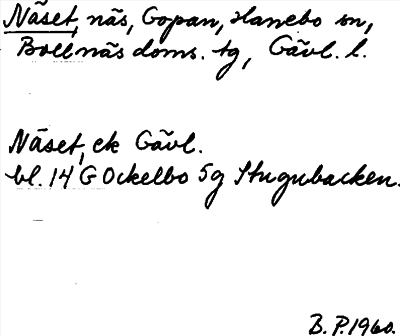 Näset, näs, Gopan, Hanebo sn,
Bollnäs doms. tg, Gävl. l.
Näset, ek Gävl.
bl. 14 G Ockelbo 5g Stugubacken.
B. P. 1960.